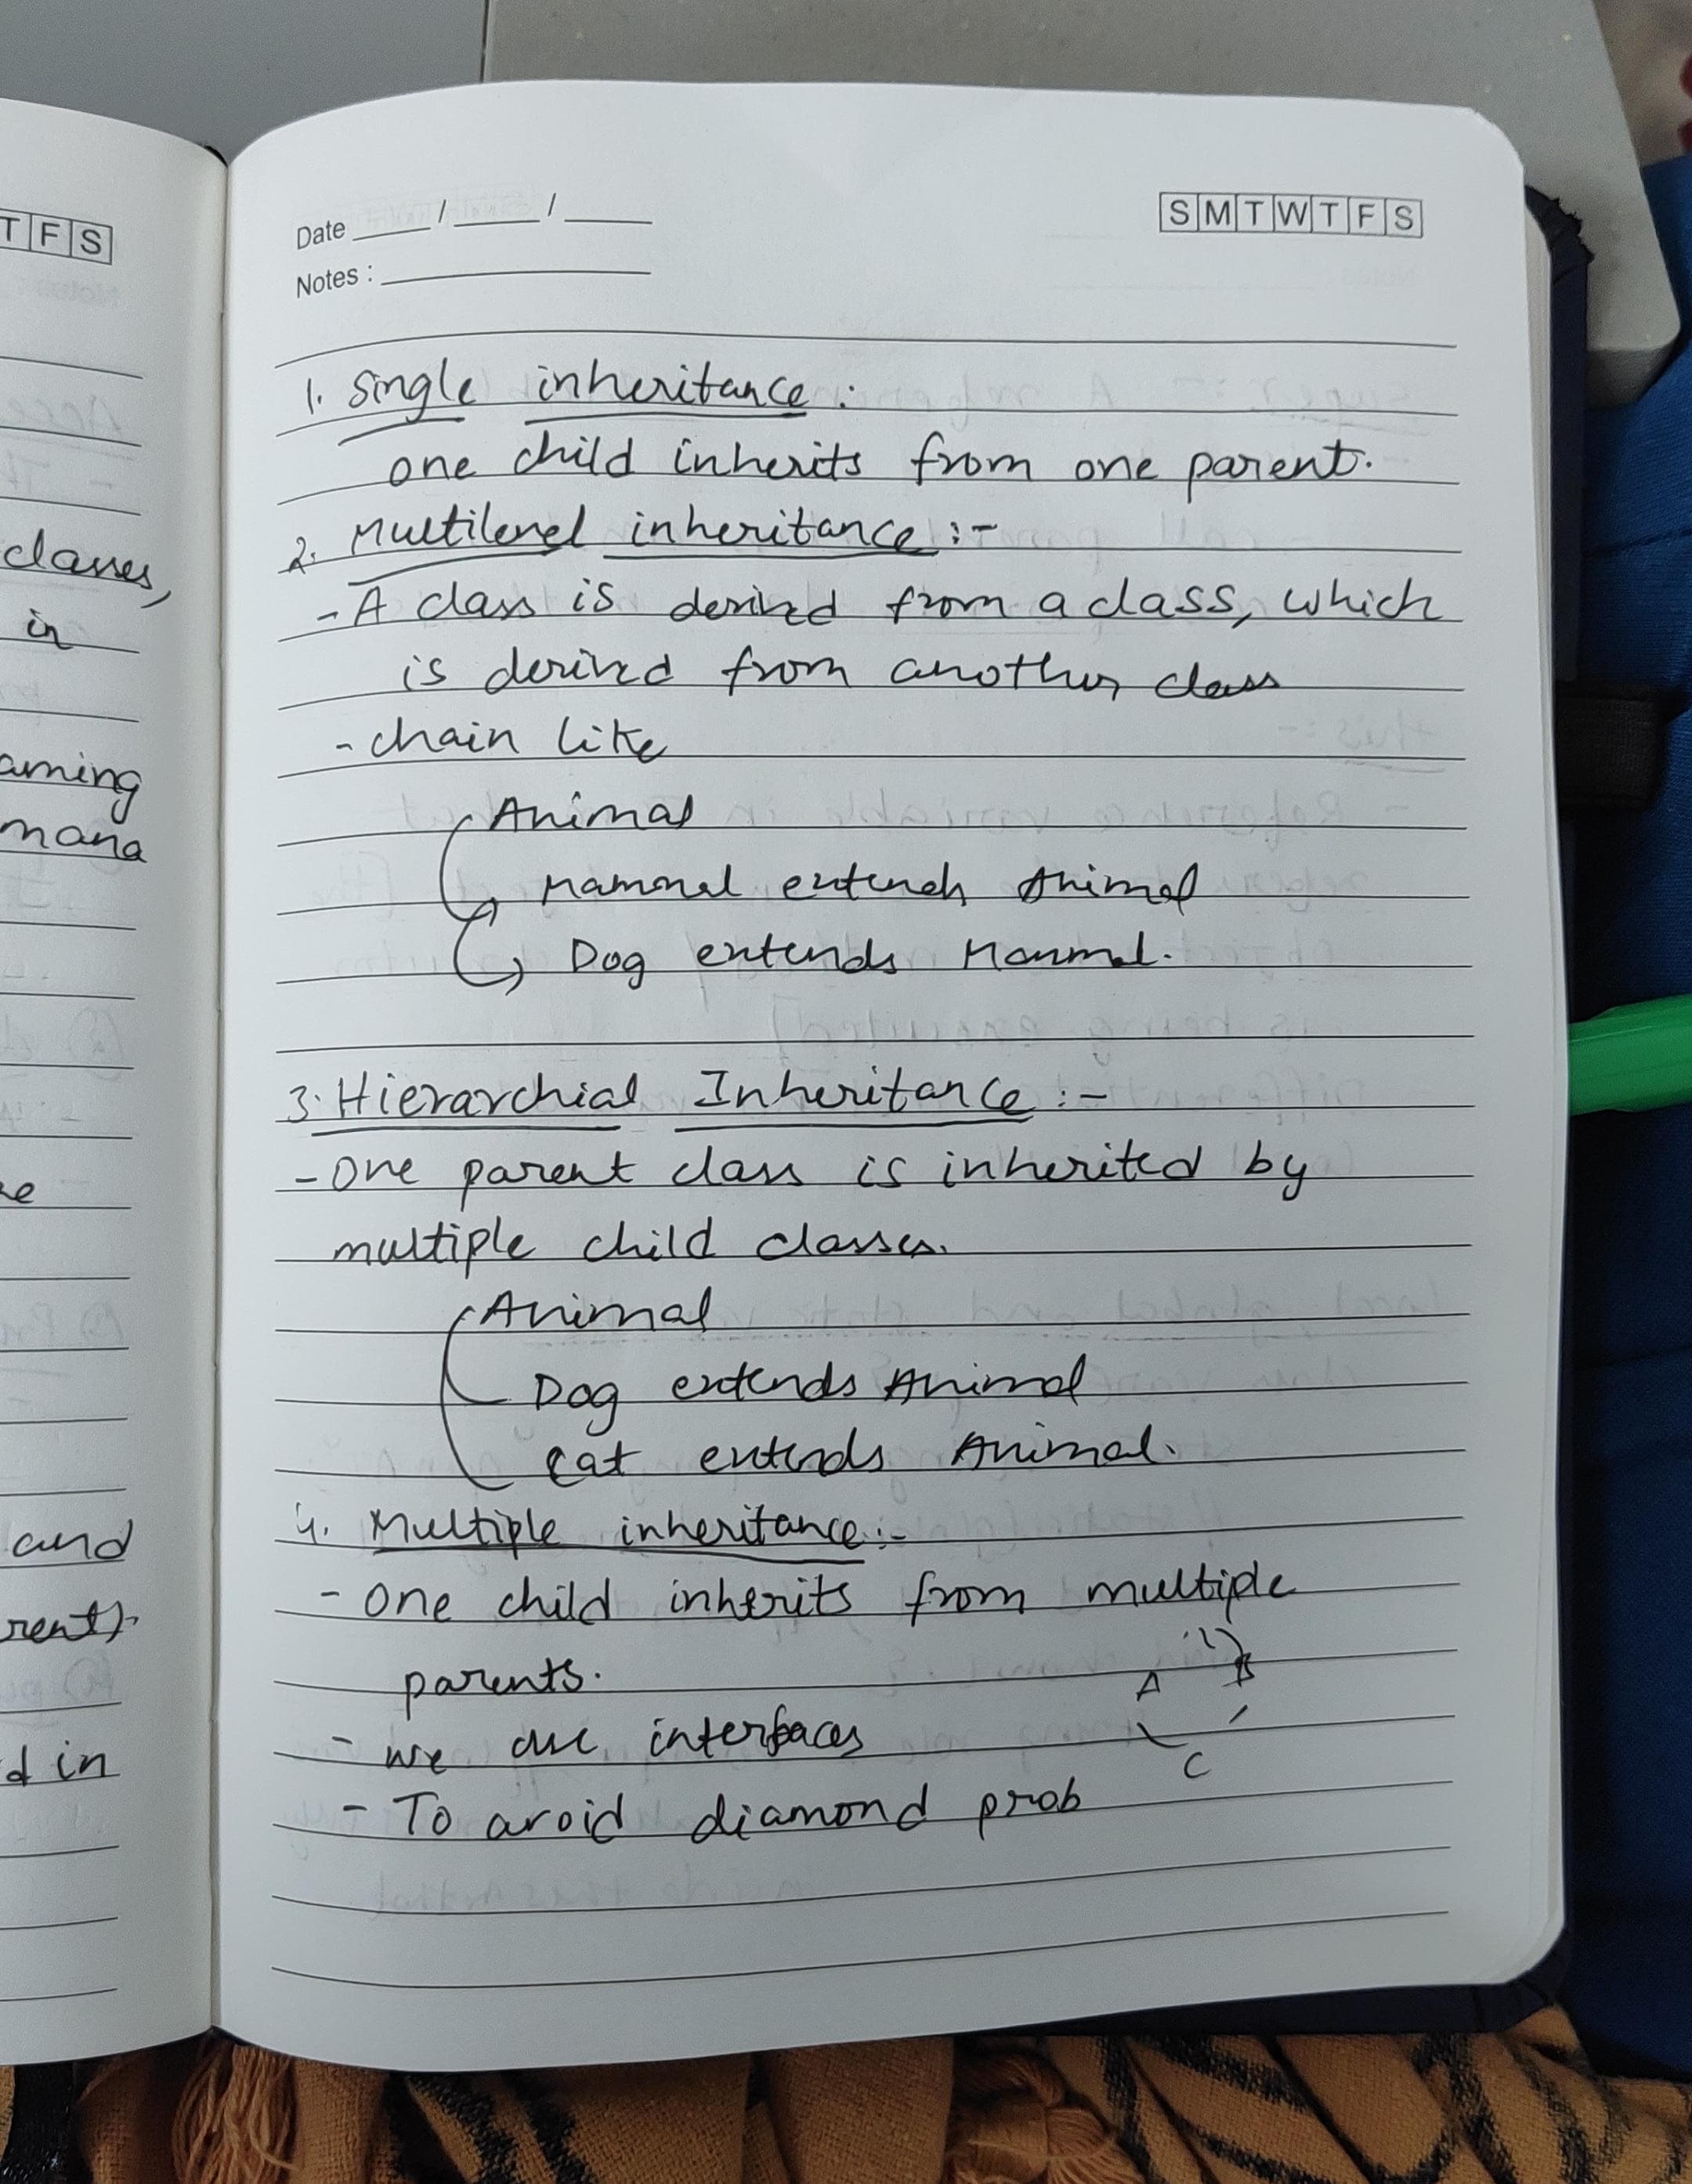 T F S
classes,
in
aming
mana
and
rent).
d in
Date / /
S M T W T F S
Notes :
1. Single inheritance :
one child inherits from one parent.
2. Multilevel inheritance :-
- A class is derived from a class, which
is derived from another class
- chain like
Animal
Mammal extends Animal
Dog extends Mammal.
3. Hierarchial Inheritance :-
- One parent class is inherited by
multiple child classes.
Animal
Dog extends Animal
Cat extends Animal.
4. Multiple inheritance :-
- One child inherits from multiple
parents.
A B
- we use interfaces
C
- To avoid diamond prob